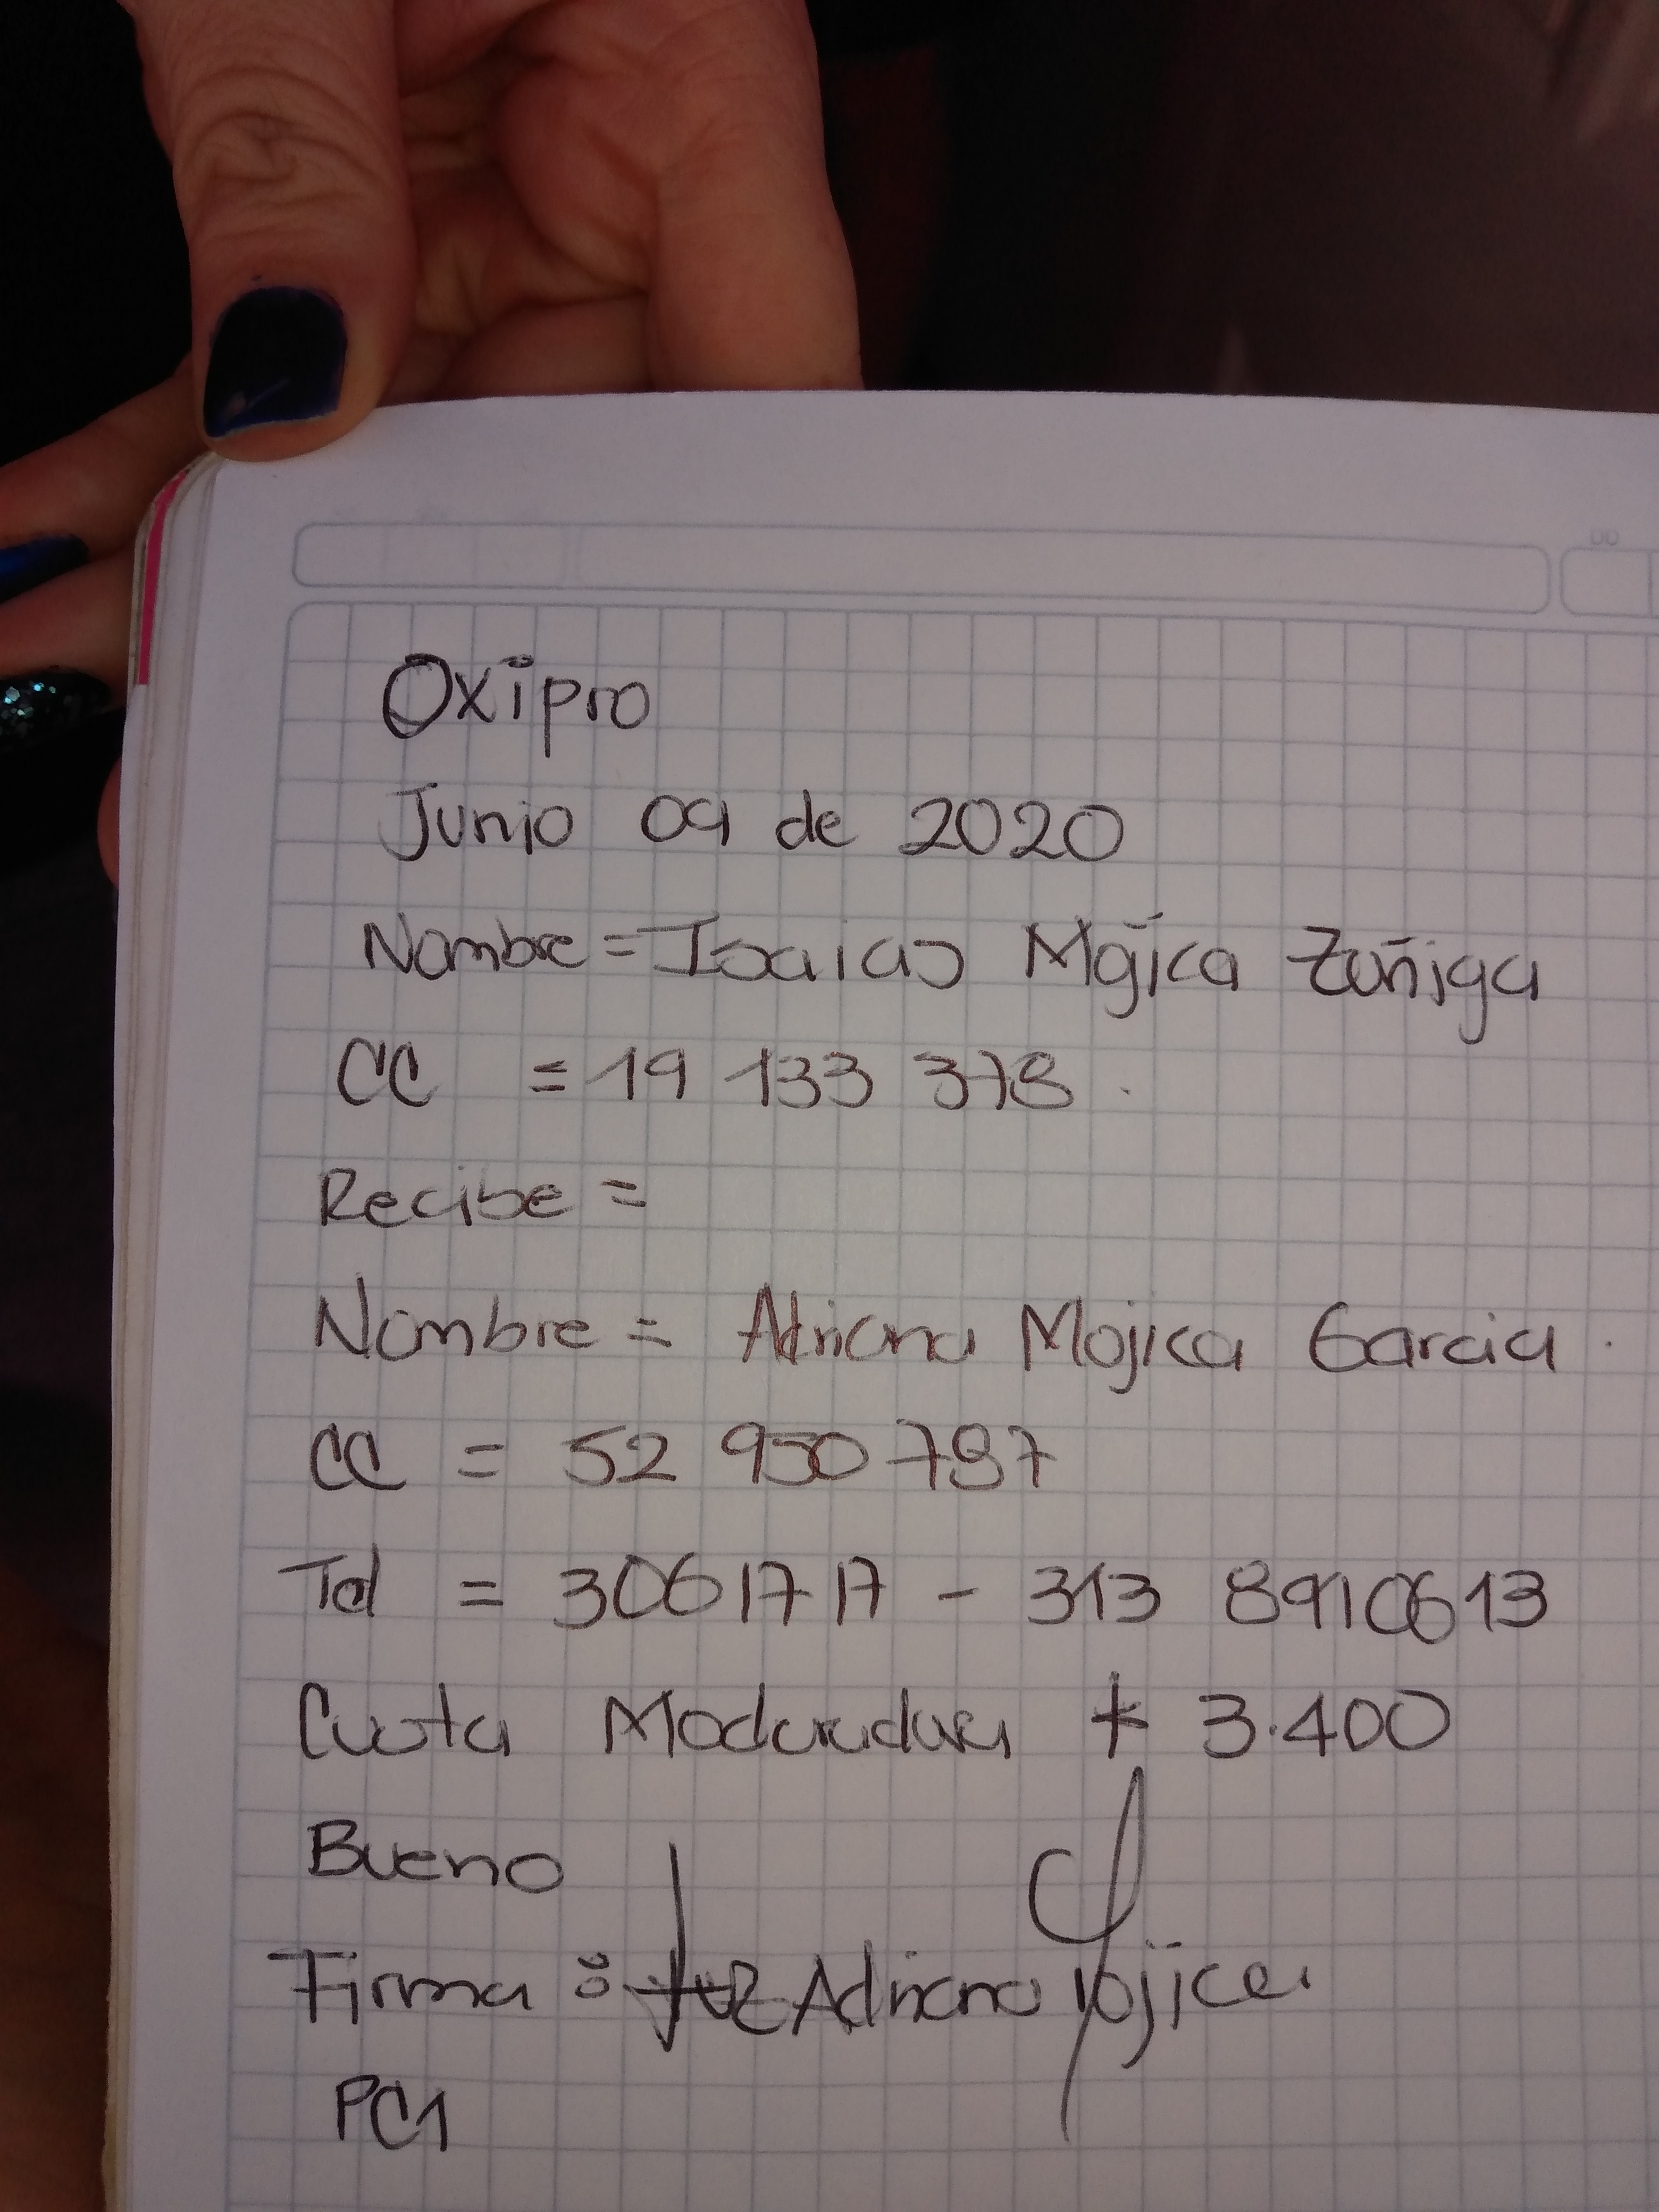 Oxipro
Junio 09 de 2020
Nombre = Isaias Mójica Zuñiga
CC = 19 133 378.
Recibe =
Nombre = Adriana Mojica Garcia.
CC = 52 950 787
Tel = 3061717 - 313 8910613
Cuota Moderadora $ 3.400
Bueno
Firma: Luz Adriana Mojica.
PC1